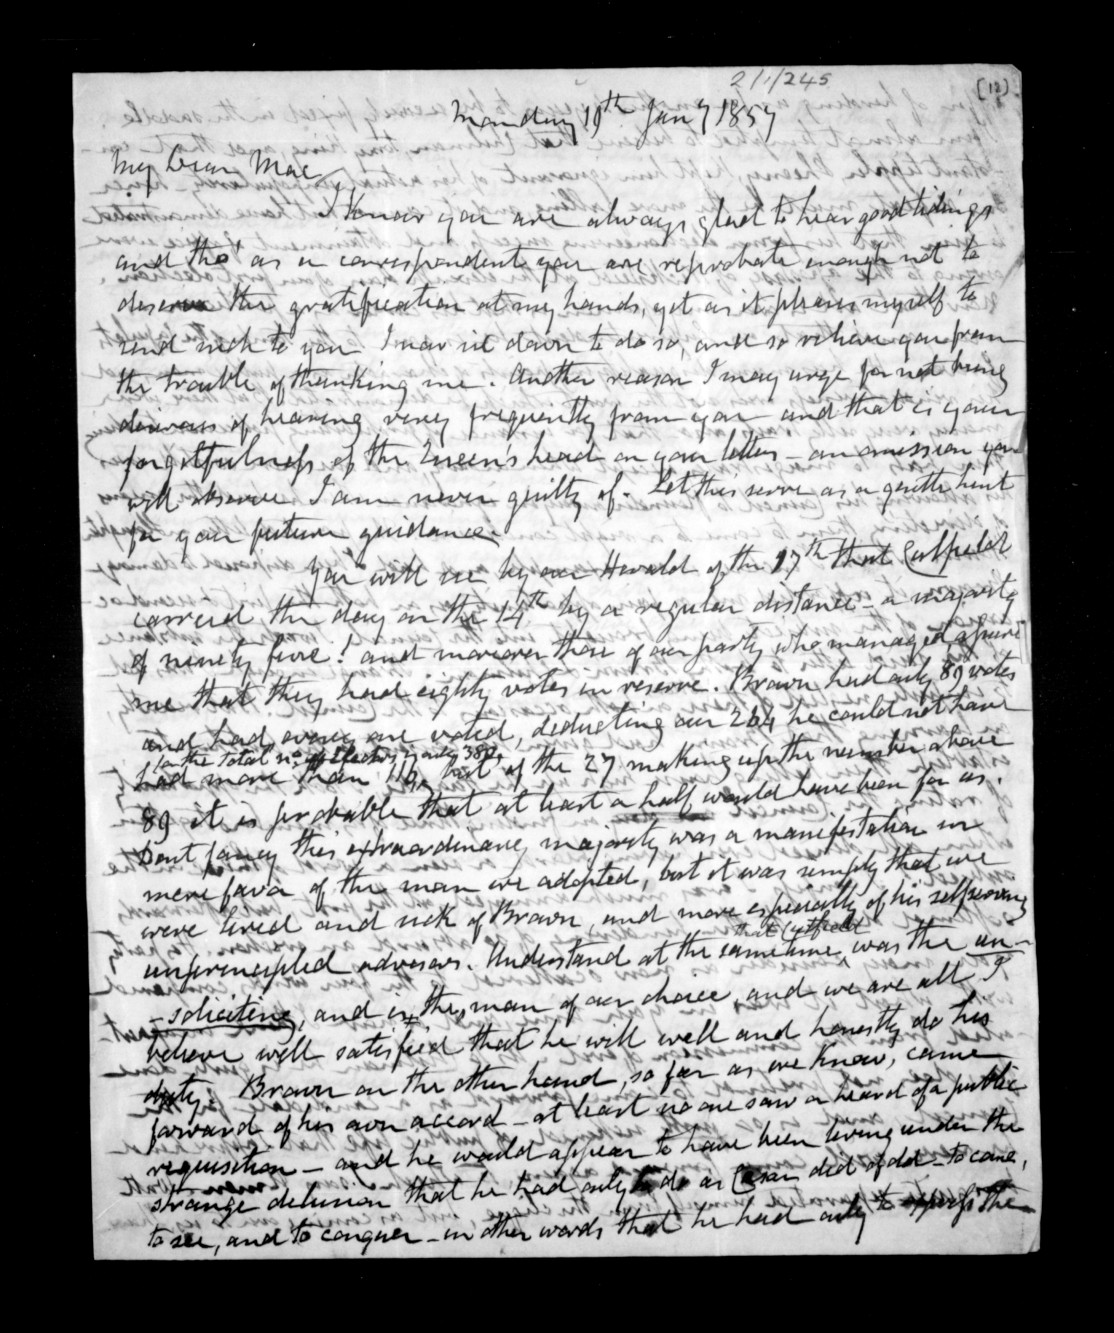 2/1/245
(12)
Monday 19th Jany 1857
My Dear Mac,
I know you are always glad to hear good tidings
and tho' as a correspondent you are reprobate enough not to
deserve the gratification at my hands, yet as it pleases myself to
send such to you I now sit down to do so, and so relieve you from
the trouble of thanking me. Another reason I may urge for not being
desirous of hearing very frequently from you and that is your
forgetfulness of the Queen's head on your letters - an omission you
will observe I am never guilty of. Let this serve as a gentle hint
for your future guidance.
You will see by our Herald of the 17th that Calfield
carried the day on the 14th by a regular distance - a majority
of ninety five! and moreover those of our party who managed, assure
me that they had eighty votes in reserve. Brown had only 89 votes
and had every one voted, deducting our 264 he could not have
(on the total no. of Electors is only 380)
had more than 116, but of the 27 making up the number above
89 it is probable that at least a half would have been for us.
Dont fancy this extraordinary majority was a manifestation in
mere favor of the man we adopted, but it was simply that we
were tired and sick of Brown, and more especially of his selfserving
unprincipled advisers. Understand at the same time, that Calfield was the un-
-soliciting, and is the man of our choice, and we are all I
believe well satisfied that he will well and honestly do his
duty. Brown on the other hand, so far as we know, came
forward of his own accord - at least no one saw or heard of a public
requisition - and he would appear to have been living under the
strange delusion that he had only to do as Cesar did of old - to come,
to see, and to conquer - in other words that he had only to the